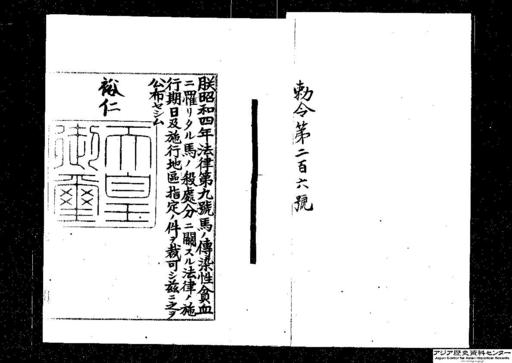 勅令第二百六號
朕昭和四年法律第九號馬ノ傳染性貧血
ニ罹リタル馬ノ殺處分ニ關スル法律ノ施
行期日及施行地區指定ノ件ヲ裁可シ茲ニ之ヲ
公布セシム
裕仁
天皇
御璽
アジア歴史資料センター
Japan Center for Asian Historical Records